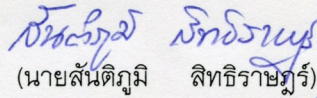 สันติภูมิ สิทธิราษฎร์
(นายสันติภูมิ สิทธิราษฎร์)